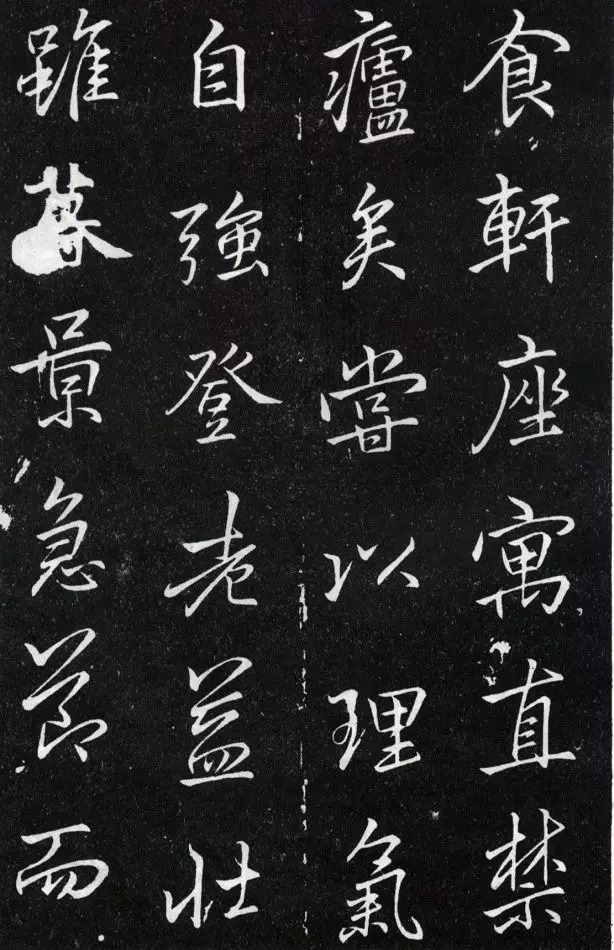 食軒座寓直禁
癯矣嘗以理氣
自強登老益壯
雖暮景急節而